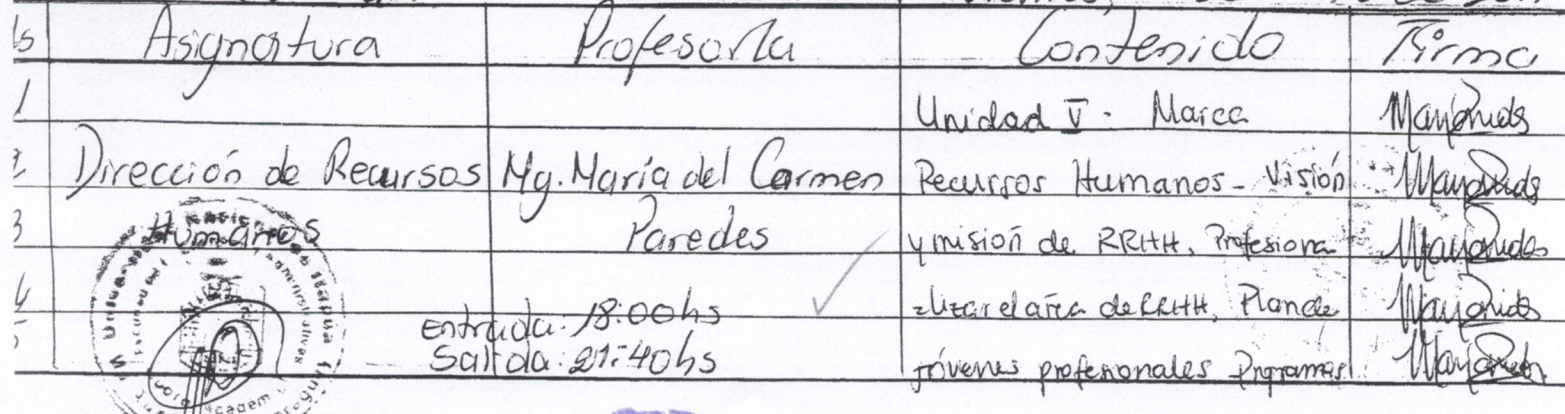 Asignatura Profesor/a Contenido Firma
1 Unidad V - Marca
2 Dirección de Recursos Mg. María del Carmen Recursos Humanos - Visión
3 Humanos Paredes y misión de RRHH, Profesiona
4 Entrada: 18:00hs lizar el área de RRHH, Plan de
Salida: 21:40hs jóvenes profesionales Programas